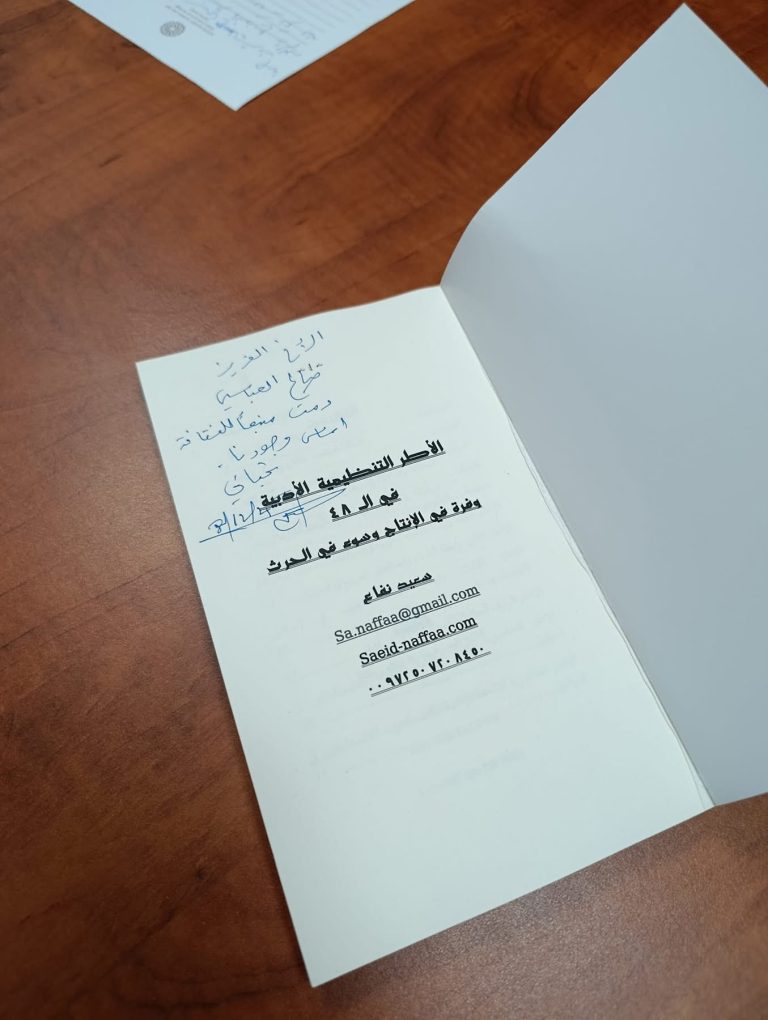 الأخ العزيز
العباسي
دمت منبعاً للثقافة
أساس وجودنا.
تحياتي
الأطر التنظيمية الأدبية
في الـ ٤٨
وفرة في الإنتاج وسوء في الحرث
سعيد نفاع
Sa.naffaa@gmail.com
Saeid-naffaa.com
٠٠٩٧٢٥٠٧٢٠٨٤٥٠